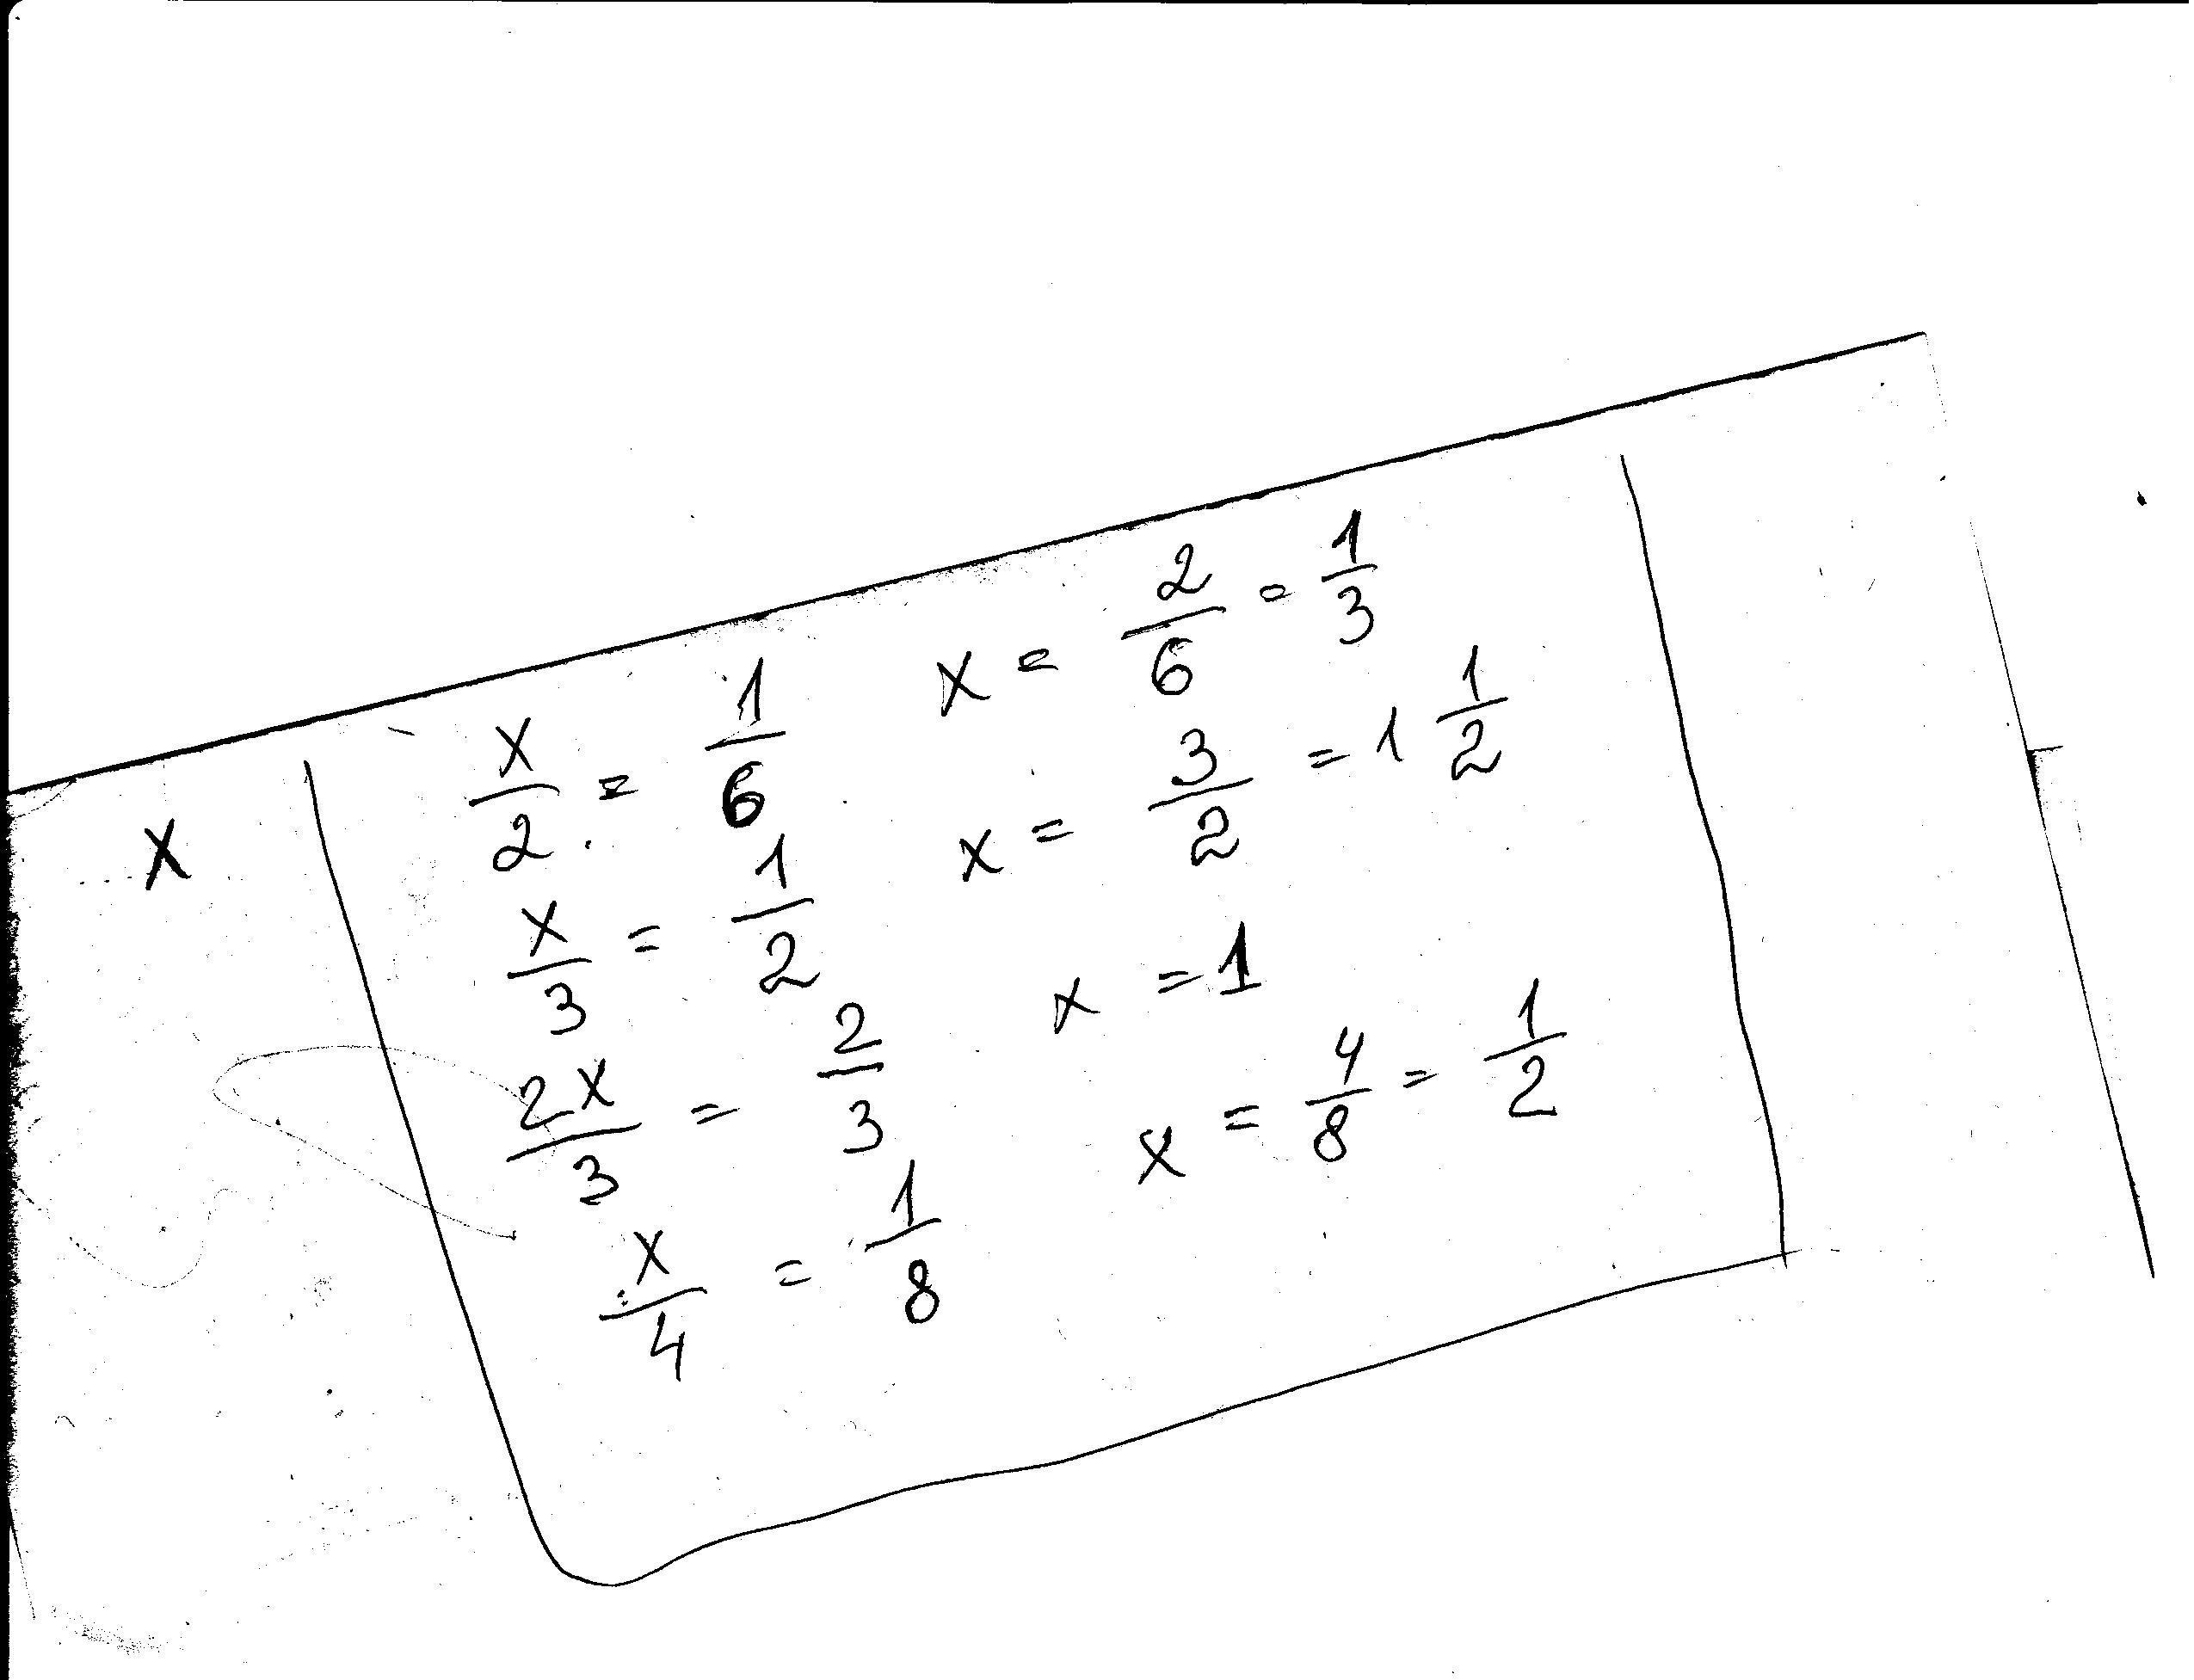 x
x/2 = 1/6 x = 2/6 = 1/3
x/3 = 1/2 x = 3/2 = 1 1/2
2x/3 = 2/3 x = 1
x/4 = 1/8 x = 4/8 = 1/2